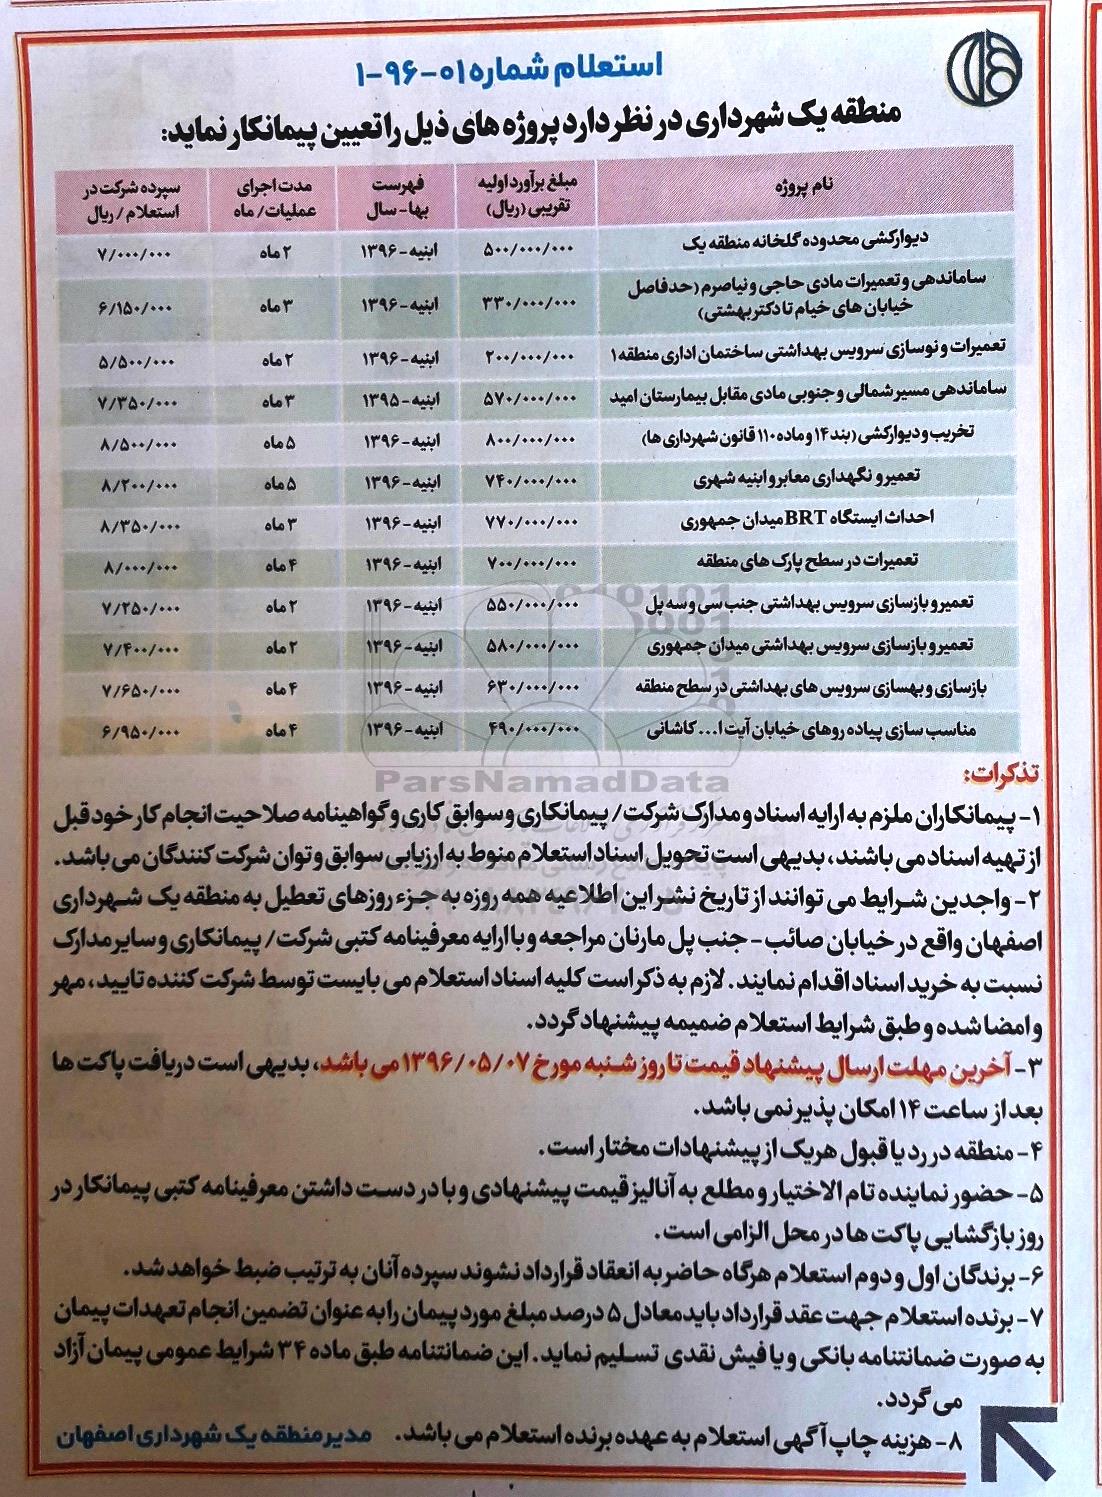 استعلام شماره ۰۱-۹۶-۱
منطقه یک شهرداری در نظر دارد پروژه های ذیل را تعیین پیمانکار نماید:
نام پروژه | مبلغ برآورد اولیه تقریبی (ریال) | فهرست بها - سال | مدت اجرای عملیات / ماه | سپرده شرکت در استعلام / ریال
دیوارکشی محدوده گلخانه منطقه یک | ۵۰۰/۰۰۰/۰۰۰ | ابنیه - ۱۳۹۶ | ۲ ماه | ۷/۰۰۰/۰۰۰
ساماندهی و تعمیرات مادی حاجی و نیاصرم (حدفاصل خیابان های خیام تا دکتر بهشتی) | ۳۳۰/۰۰۰/۰۰۰ | ابنیه - ۱۳۹۶ | ۳ ماه | ۶/۱۵۰/۰۰۰
تعمیرات و نوسازی سرویس بهداشتی ساختمان اداری منطقه ۱ | ۲۰۰/۰۰۰/۰۰۰ | ابنیه - ۱۳۹۶ | ۲ ماه | ۵/۵۰۰/۰۰۰
ساماندهی مسیر شمالی و جنوبی مادی مقابل بیمارستان امید | ۵۷۰/۰۰۰/۰۰۰ | ابنیه - ۱۳۹۵ | ۳ ماه | ۷/۳۵۰/۰۰۰
تخریب و دیوارکشی (بند ۱۴ و ماده ۱۱۰ قانون شهرداری ها) | ۸۰۰/۰۰۰/۰۰۰ | ابنیه - ۱۳۹۶ | ۵ ماه | ۸/۵۰۰/۰۰۰
تعمیر و نگهداری معابر و ابنیه شهری | ۷۴۰/۰۰۰/۰۰۰ | ابنیه - ۱۳۹۶ | ۵ ماه | ۸/۲۰۰/۰۰۰
احداث ایستگاه BRT میدان جمهوری | ۷۷۰/۰۰۰/۰۰۰ | ابنیه - ۱۳۹۶ | ۳ ماه | ۸/۳۵۰/۰۰۰
تعمیرات در سطح پارک های منطقه | ۷۰۰/۰۰۰/۰۰۰ | ابنیه - ۱۳۹۶ | ۴ ماه | ۸/۰۰۰/۰۰۰
تعمیر و بازسازی سرویس بهداشتی جنب سی و سه پل | ۵۵۰/۰۰۰/۰۰۰ | ابنیه - ۱۳۹۶ | ۲ ماه | ۷/۲۵۰/۰۰۰
تعمیر و بازسازی سرویس بهداشتی میدان جمهوری | ۵۸۰/۰۰۰/۰۰۰ | ابنیه - ۱۳۹۶ | ۲ ماه | ۷/۴۰۰/۰۰۰
بازسازی و بهسازی سرویس های بهداشتی در سطح منطقه | ۶۳۰/۰۰۰/۰۰۰ | ابنیه - ۱۳۹۶ | ۴ ماه | ۷/۶۵۰/۰۰۰
مناسب سازی پیاده روهای خیابان آیت ا... کاشانی | ۴۹۰/۰۰۰/۰۰۰ | ابنیه - ۱۳۹۶ | ۴ ماه | ۶/۹۵۰/۰۰۰
ParsNamadData
تذکرات:
۱- پیمانکاران ملزم به ارایه اسناد و مدارک شرکت / پیمانکاری و سوابق کاری و گواهینامه صلاحیت انجام کار خود قبل
از تهیه اسناد می باشند، بدیهی است تحویل اسناد استعلام منوط به ارزیابی سوابق و توان شرکت کنندگان می باشد.
۲- واجدین شرایط می توانند از تاریخ نشر این اطلاعیه همه روزه به جزء روزهای تعطیل به منطقه یک شهرداری
اصفهان واقع در خیابان صائب - جنب پل مارنان مراجعه و با ارایه معرفینامه کتبی شرکت / پیمانکاری و سایر مدارک
نسبت به خرید اسناد اقدام نمایند. لازم به ذکر است کلیه اسناد استعلام می بایست توسط شرکت کننده تایید، مهر
و امضا شده و طبق شرایط استعلام ضمیمه پیشنهاد گردد.
۳- آخرین مهلت ارسال پیشنهاد قیمت تا روز شنبه مورخ ۱۳۹۶/۰۵/۰۷ می باشد، بدیهی است دریافت پاکت ها
بعد از ساعت ۱۴ امکان پذیر نمی باشد.
۴- منطقه در رد یا قبول هریک از پیشنهادات مختار است.
۵- حضور نماینده تام الاختیار و مطلع به آنالیز قیمت پیشنهادی و با در دست داشتن معرفینامه کتبی پیمانکار در
روز بازگشایی پاکت ها در محل الزامی است.
۶- برندگان اول و دوم استعلام هرگاه حاضر به انعقاد قرارداد نشوند سپرده آنان به ترتیب ضبط خواهد شد.
۷- برنده استعلام جهت عقد قرارداد باید معادل ۵ درصد مبلغ مورد پیمان را به عنوان تضمین انجام تعهدات پیمان
به صورت ضمانتنامه بانکی و یا فیش نقدی تسلیم نماید. این ضمانتنامه طبق ماده ۳۴ شرایط عمومی پیمان آزاد
می گردد.
۸- هزینه چاپ آگهی استعلام به عهده برنده استعلام می باشد.
مدیر منطقه یک شهرداری اصفهان